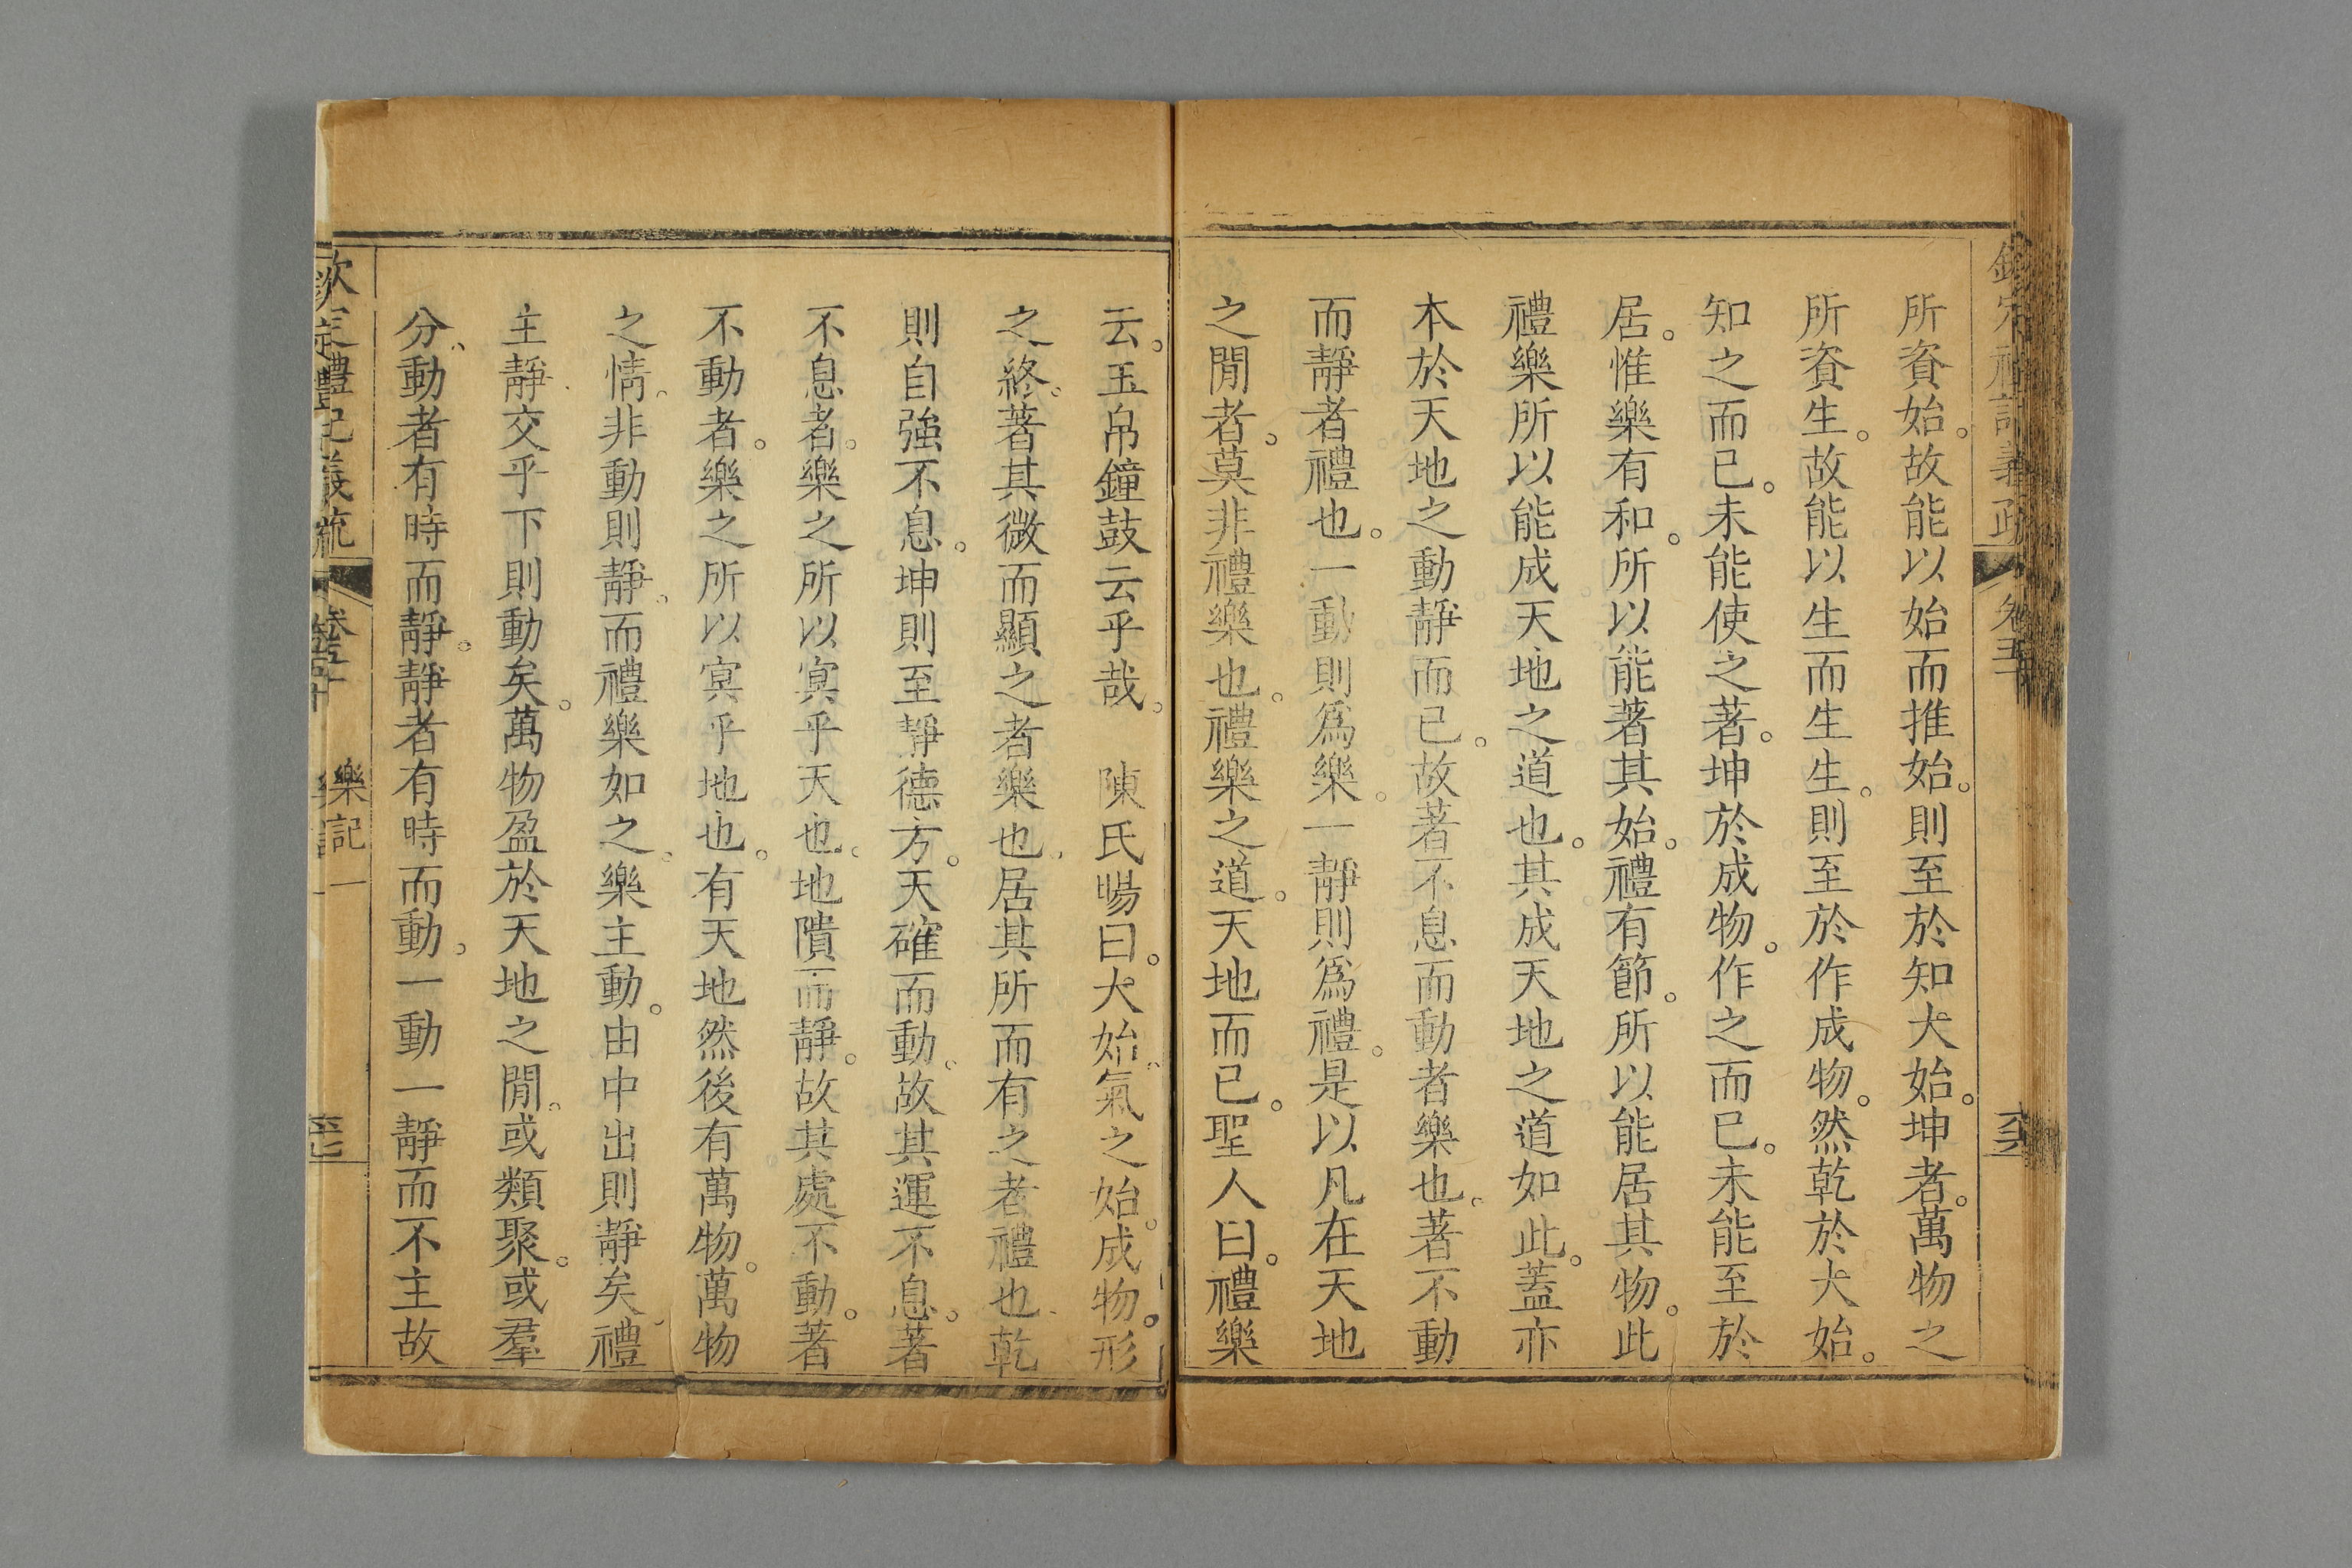 所資始。故能以始而推始。則至於知大始。坤者。萬物之
所資生。故能以生而生生。則至於作成物。然乾於大始。
知之而已。未能使之著。坤於成物。作之而已。未能至於
居。惟樂有和。所以能著其始。禮有節。所以能居其物。此
禮樂所以能成天地之道也。其成天地之道如此。蓋亦
本於天地之動靜而已。故著不息而動者樂也。著不動
而靜者禮也。一動則爲樂。一靜則爲禮。是以凡在天地
之閒者。莫非禮樂也。禮樂之道。天地而已。聖人曰。禮樂
云。玉帛鐘鼓云乎哉。　陳氏暘曰。大始。氣之始。成物。形
之終。著其微而顯之者樂也。居其所而有之者禮也。乾
則自強不息。坤則至靜德方。天確而動。故其運不息。著
不息者。樂之所以寅乎天也。地隤而靜。故其處不動。著
不動者。樂之所以寅乎地也。有天地然後有萬物。萬物
之情。非動則靜。而禮樂如之。樂主動。由中出則靜矣。禮
主靜。交乎下則動矣。萬物盈於天地之閒。或類聚。或羣
分。動者有時而靜。靜者有時而動。一動一靜而不主故
欽定禮記義疏 卷五十 樂記一